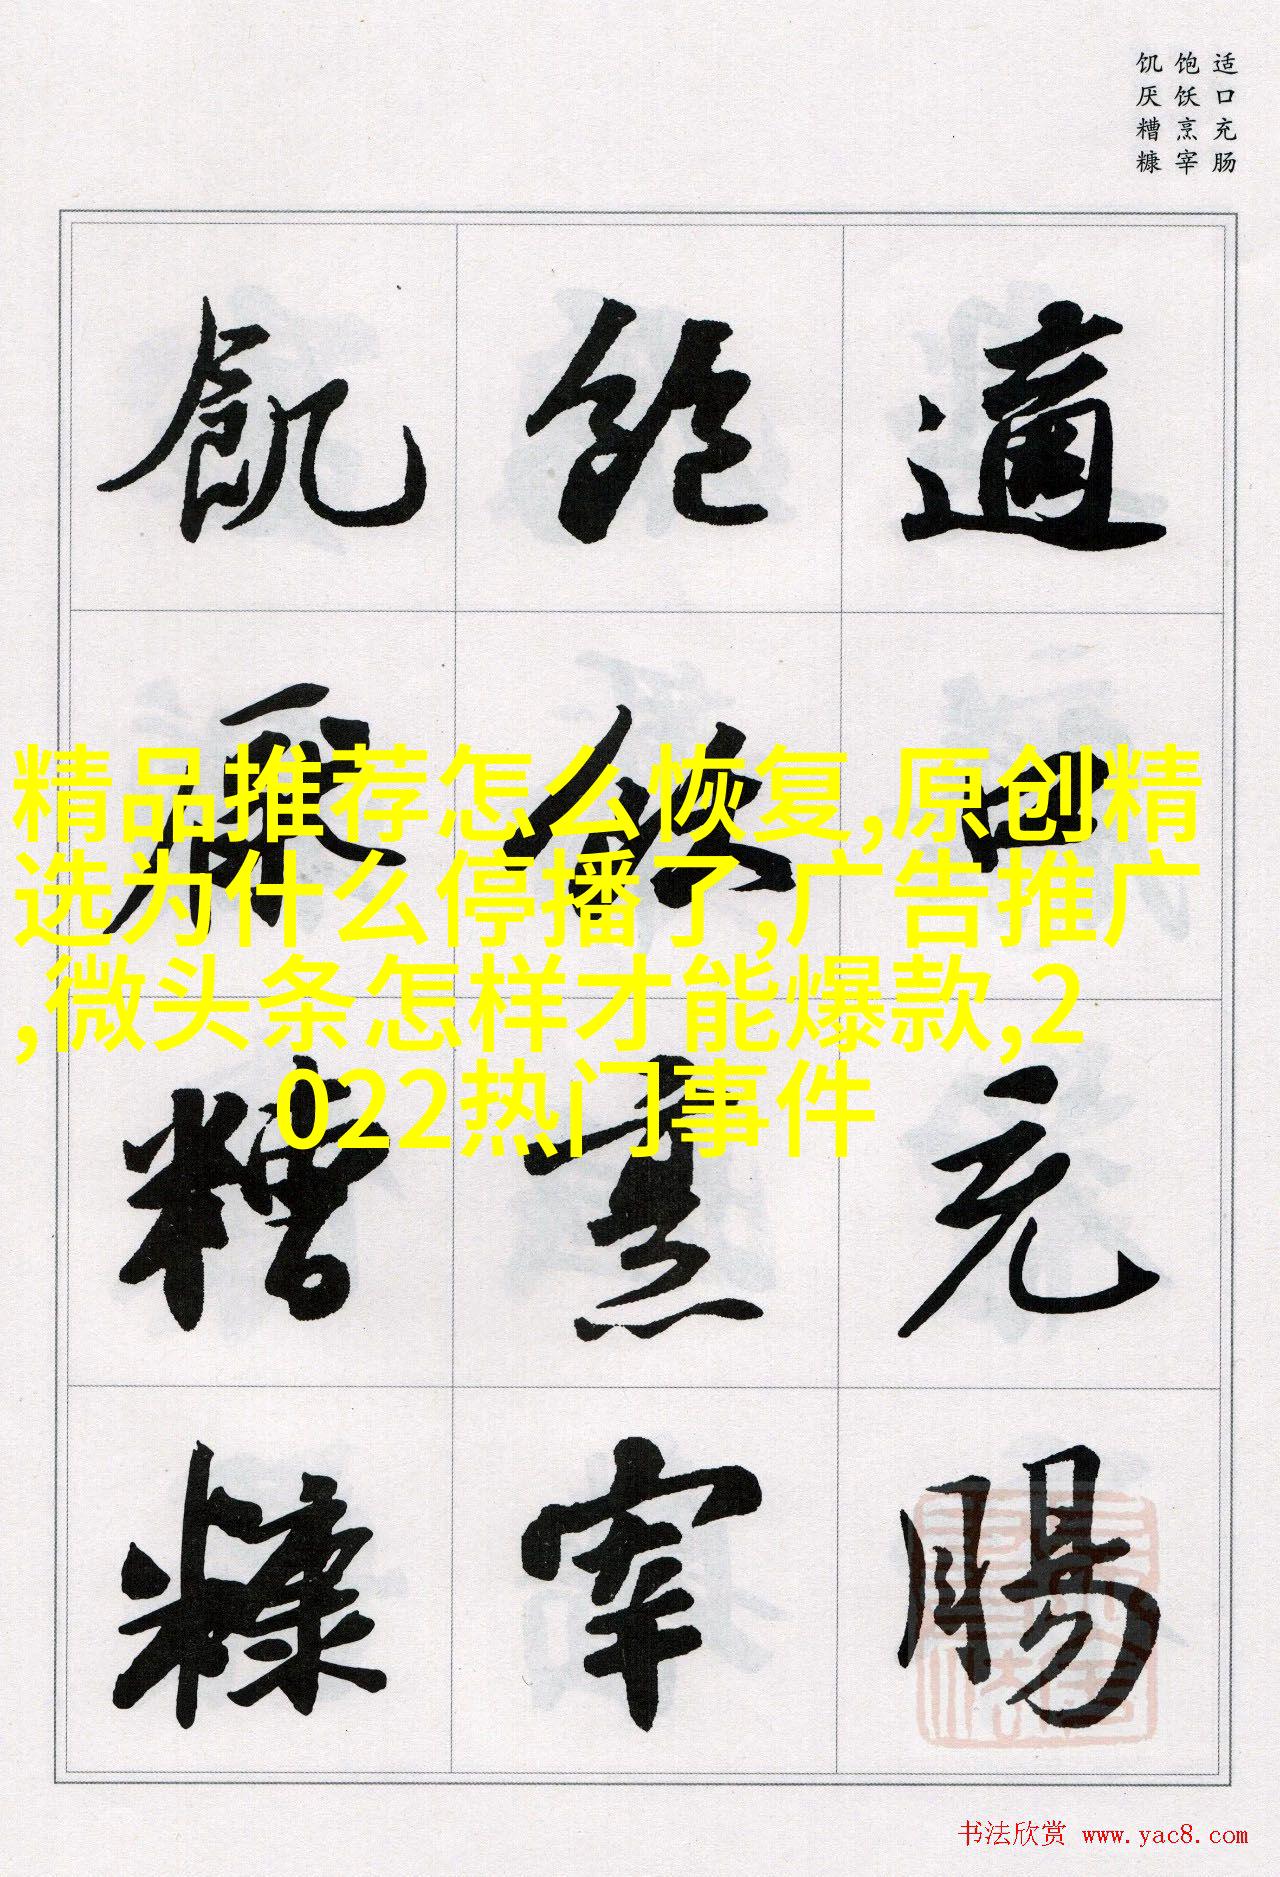 适口充肠
饱饫烹宰
饥厌糟糠
適口充腸
飽飫烹宰
飢厭糟糠
精品推荐怎么恢复,原创精
选为什么停播了,广告推广
,微头条怎样才能爆款,2
022热门事件
书法欣赏 www.yac8.com